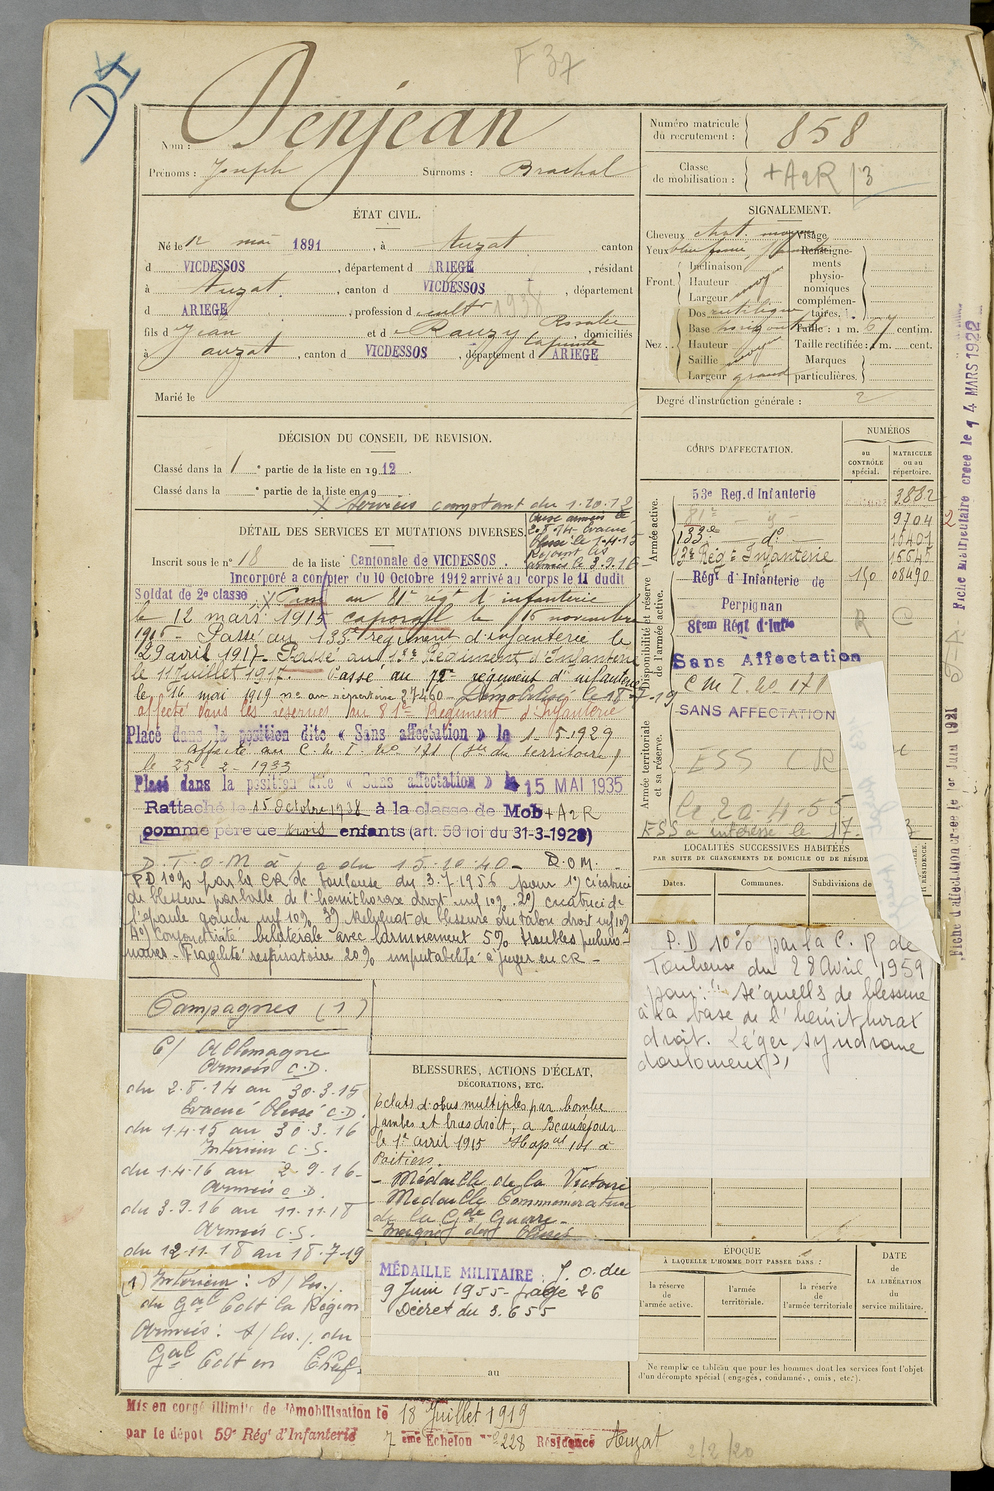 F 37
DI
Nom : Denjean
Prénoms : Joseph Surnoms : Brachal
Numéro matricule du recrutement : 858
Classe de mobilisation : +A2R /3
ÉTAT CIVIL.
Né le 12 mai 1891, à Auzat canton
d VICDESSOS, département d ARIEGE, résidant
à Auzat, canton d VICDESSOS, département
d ARIEGE, profession d cultr 1938
fils d Jean et d Rauzy Rosalie domiciliés
à auzat, canton d VICDESSOS, département d ARIEGE
Marié le
SIGNALEMENT.
Cheveux chat. moyen Visage
Yeux bleu
Front Inclinaison
Hauteur
Largeur moyen
Nez Dos rectiligne
Base
Hauteur
Saillie moyen
Largeur grand
Renseignements physionomiques complémentaires.
Taille : 1 m. 67 centim.
Taille rectifiée : 1 m. cent.
Marques particulières.
Degré d'instruction générale : 2
DÉCISION DU CONSEIL DE REVISION.
Classé dans la 1 e partie de la liste en 1912
Classé dans la e partie de la liste en 19
X Services comptant du 1.10.12
DÉTAIL DES SERVICES ET MUTATIONS DIVERSES.
aux armées le
2.8.14 Evacué
blessé le 1.4.15
Rejoint les
armées le 3.9.16
Inscrit sous le n° 18 de la liste Cantonale de VICDESSOS
Incorporé a compter du 10 Octobre 1912 arrivé au corps le 11 dudit
Soldat de 2e classe ; X Passé au 81e régt d'infanterie
le 12 mars 1915 caporal le 15 novembre
1916 - Passé au 133e régiment d'infanterie le
29 avril 1917 - Passé au 12e Régiment d'Infanterie
le 11 juillet 1917. Passé au 72e régiment d'infanterie
le 16 mai 1919 no au répertoire 27460 - Démobilisé le 18-7-19
affecté dans les réserves au 81e Régiment d'Infanterie
Placé dans la position dite « Sans affectation » le 1.5.1929
affecté au C.M.I. No 171 (Son du territoire)
le 25-2-1933
Placé dans la position dite « Sans affectation » le 15 MAI 1935
Rattaché le 15 Octobre 1938 à la classe de Mob +A2R
comme père de trois enfants (art. 58 loi du 31-3-1928)
D.T.O.M a du 15.10.40 - D.O.M.
PD 10% par la CR de Toulouse du 3.7.1956 pour 1°) cicatrice
de blessure partielle de l'hémithorax droit inf 10%. 2°) cicatrice de
l'épaule gauche inf 10% 3°) Reliquat de blessure du talon droit inf 10%
4°) Conjonctivité bilatérale avec larmoiement 5% troubles pulmo-
naires - Fragilité respiratoire 20% imputabilité à juger en CR -
CORPS D'AFFECTATION.
NUMÉROS
au CONTRÔLE spécial.
MATRICULE ou au répertoire.
Armée active.
53e Reg.d Infanterie 3882
81e - d° - 9704
133e d° 16401
12e Rég t Infanterie 16645
Disponibilité et réserve de l'armée active.
Régt d'Infanterie de Perpignan 190 08490
81em Régt d'Infie
Sans Affectation
Armée territoriale et sa réserve.
C M I. No 171
SANS AFFECTATION
ESS CR
le 20-4-55
ESS a intéressé le 17-
LOCALITÉS SUCCESSIVES HABITÉES
PAR SUITE DE CHANGEMENTS DE DOMICILE OU DE RÉSIDE
Dates.
Communes.
Subdivisions de
P.D 10% par la C. R de
Toulouse du 28 Avril 1959
pour: " Séquelles de blessure
à la base de l'hémithorax
droit. Léger syndrome
douloureux",
Campagnes (1)
C/ Allemagne
Armées C.D.
du 2.8.14 au 30.3.15
Evacué Blessé C.D.
du 1.4.15 au 30.3.16
Intérieur C.S.
du 1.4.16 au 2.9.16-
Armées C.D.
du 3.9.16 au 11.11.18
Armées C.S.
du 12.11.18 au 18.7.19
(1) Intérieur : A/ les./
du Gal Colt la Région
Armées : A/ les./ du
Gal Colt en Chef.
BLESSURES, ACTIONS D'ÉCLAT,
DÉCORATIONS, ETC.
Eclats d'obus multiples par bombe
jambes et bras droit, à Beauséjour
le 1er avril 1915 Hopal 101 à
Poitiers.
- Médaille de la Victoire
- Médaille Commemorative
de la Gde Guerre -
Insigne des Blessés
MÉDAILLE MILITAIRE : J.O. du
9 Juin 1955 - page 26
Décret du 3.6.55
au
ÉPOQUE
À LAQUELLE L'HOMME DOIT PASSER DANS :
la réserve de l'armée active.
l'armée territoriale.
la réserve de l'armée territoriale
DATE de LA LIBÉRATION du service militaire.
Ne remplir ce tableau que pour les hommes dont les services font l'objet
d'un décompte spécial (engagés, condamnés, omis, etc.).
Mis en congé illimité de démobilisation le 18 Juillet 1919
par le dépot 59e Régt d'Infanterie 7 eme Echelon no 2228 Résidence Auzat
2/2/20
Fiche Matriculaire créée le 14 MARS 1922
Fiche d'affectation créée le 1er Juin 1921